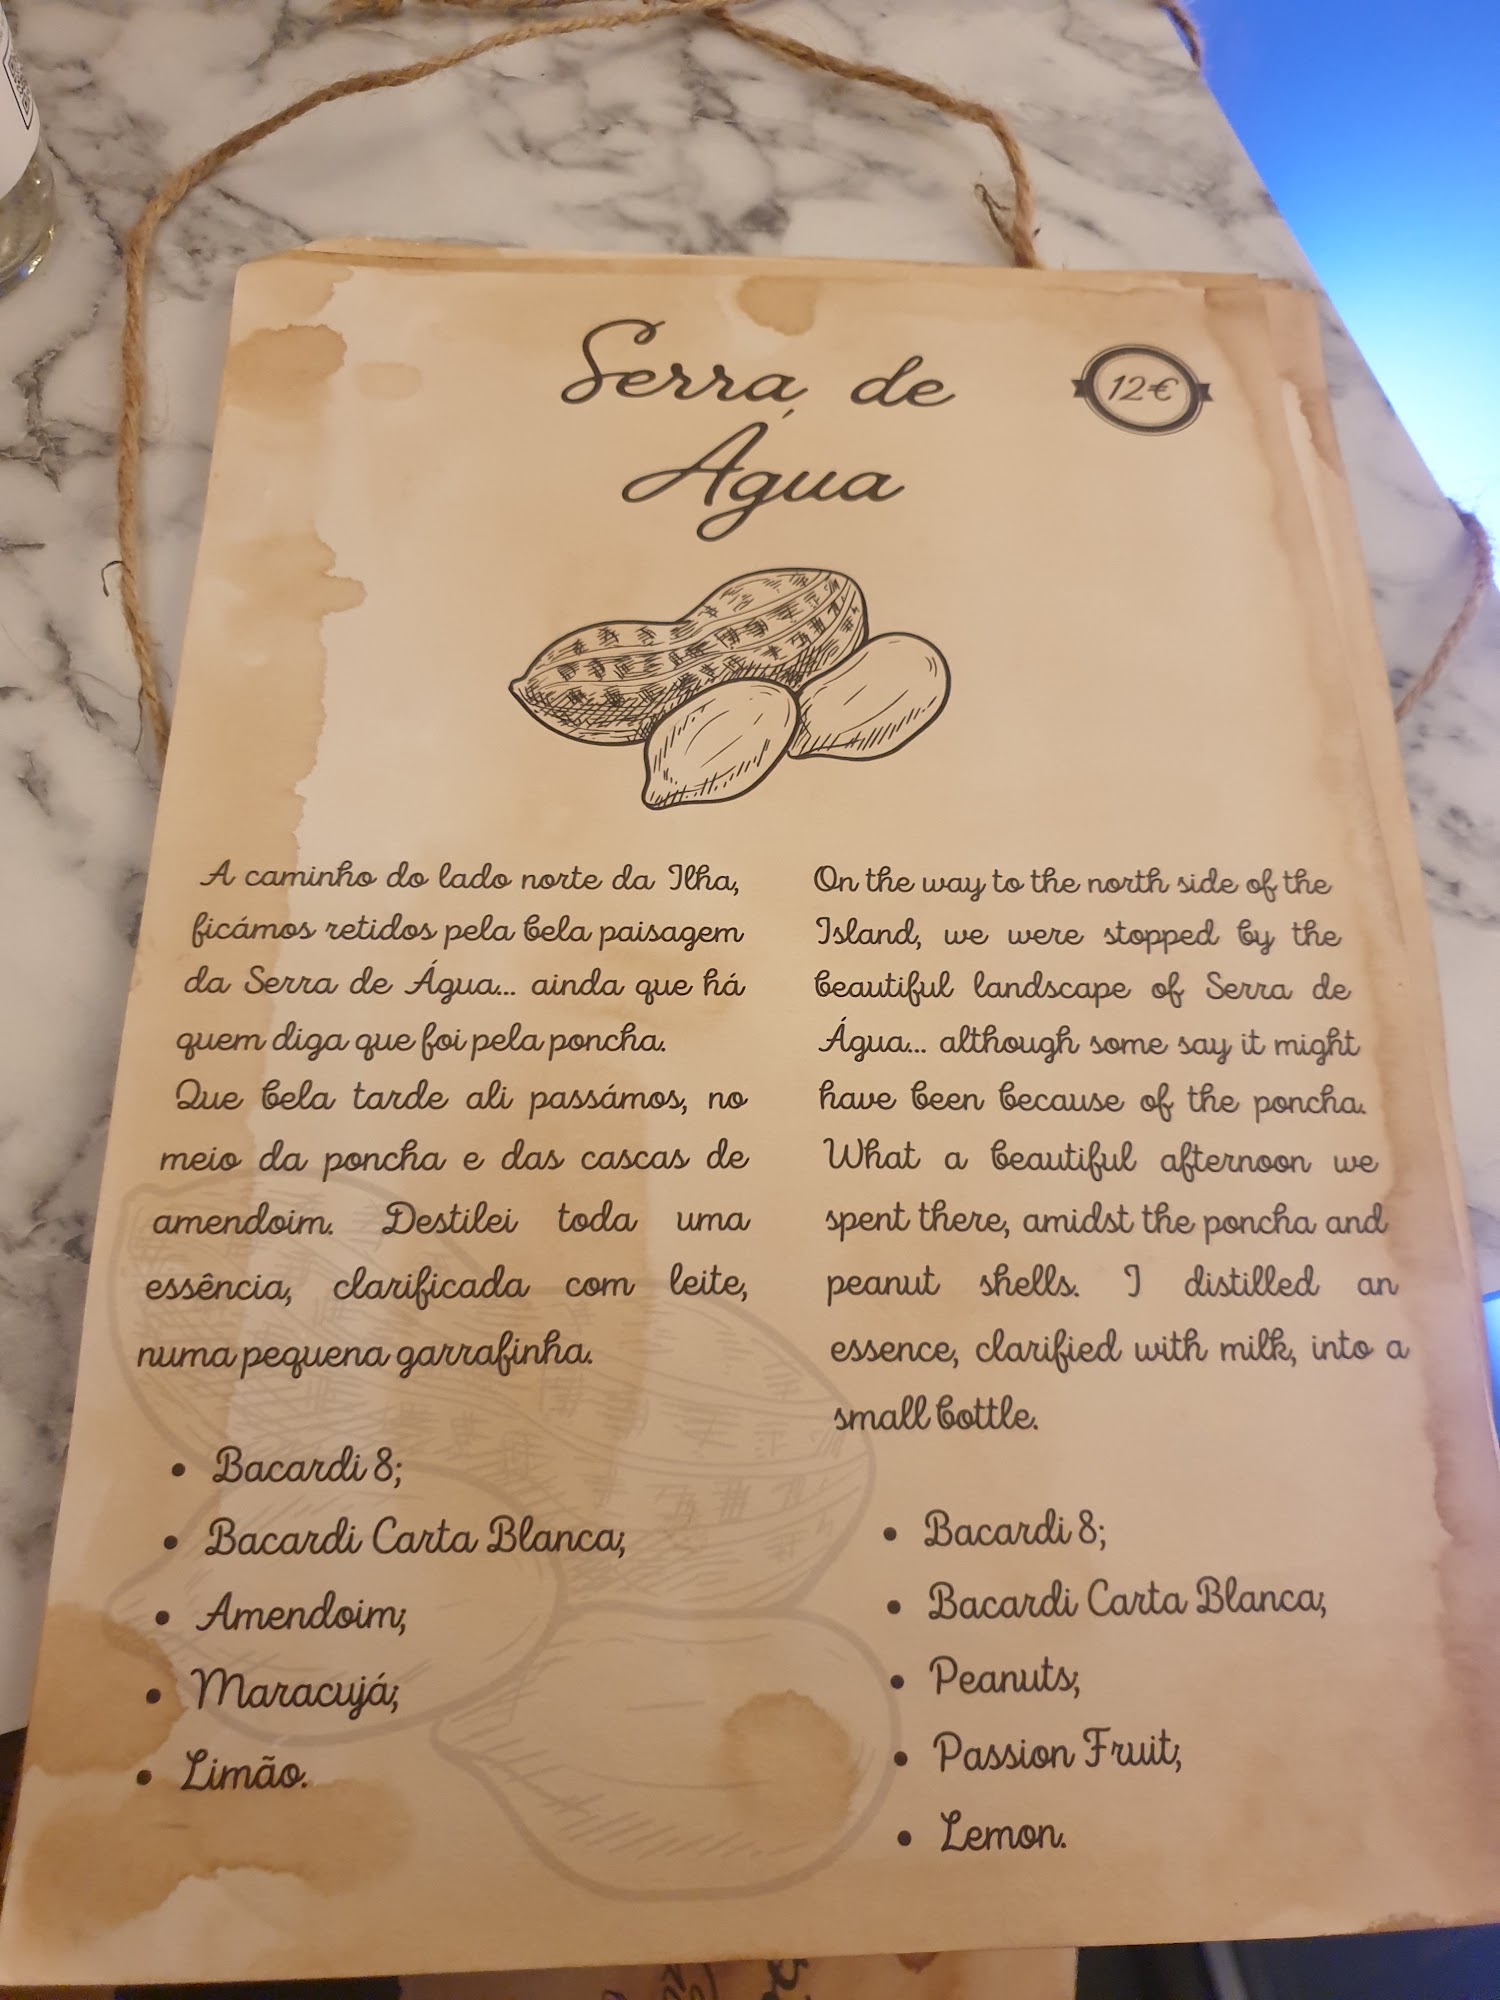 Serra de
Água
12€
A caminho do lado norte da Ilha,
ficámos retidos pela bela paisagem
da Serra de Água... ainda que há
quem diga que foi pela poncha.
Que bela tarde ali passámos, no
meio da poncha e das cascas de
amendoim. Destilei toda uma
essência, clarificada com leite,
numa pequena garrafinha.
• Bacardi 8;
• Bacardi Carta Blanca;
• Amendoim;
• Maracujá;
• Limão.
On the way to the north side of the
Island, we were stopped by the
beautiful landscape of Serra de
Água... although some say it might
have been because of the poncha.
What a beautiful afternoon we
spent there, amidst the poncha and
peanut shells. I distilled an
essence, clarified with milk, into a
small bottle.
• Bacardi 8;
• Bacardi Carta Blanca;
• Peanuts;
• Passion Fruit;
• Lemon.